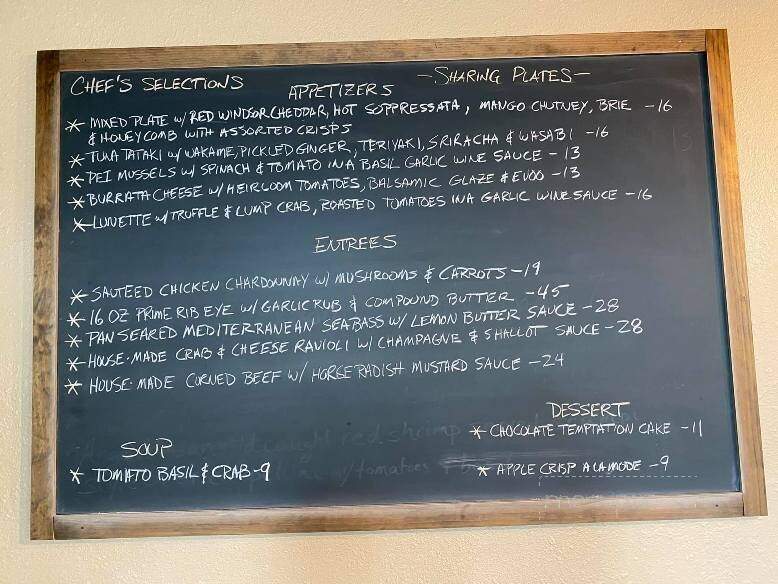 CHEF'S SELECTIONS
APPETIZERS
-SHARING PLATES-
* MIXED PLATE w/ RED WINDSOR CHEDDAR, HOT SOPPRESSATA, MANGO CHUTNEY, BRIE -16
& HONEYCOMB WITH ASSORTED CRISPS
* TUNA TATAKI w/ WAKAME, PICKLED GINGER, TERIYAKI, SRIRACHA & WASABI -16
* PEI MUSSELS w/ SPINACH & TOMATO IN A BASIL GARLIC WINE SAUCE -13
* BURRATA CHEESE w/ HEIRLOOM TOMATOES, BALSAMIC GLAZE & EVOO -13
* LUNETTE w/ TRUFFLE & LUMP CRAB, ROASTED TOMATOES IN A GARLIC WINE SAUCE -16
ENTREES
* SAUTEED CHICKEN CHARDONNAY w/ MUSHROOMS & CARROTS -19
* 16 OZ PRIME RIB EYE w/ GARLIC RUB & COMPOUND BUTTER -45
* PAN SEARED MEDITERRANEAN SEABASS w/ LEMON BUTTER SAUCE -28
* HOUSE-MADE CRAB & CHEESE RAVIOLI w/ CHAMPAGNE & SHALLOT SAUCE -28
* HOUSE-MADE CORNED BEEF w/ HORSERADISH MUSTARD SAUCE -24
SOUP
* TOMATO BASIL & CRAB -9
DESSERT
* CHOCOLATE TEMPTATION CAKE -11
* APPLE CRISP A LA MODE -9
red shrimp
w/ tomatoes &